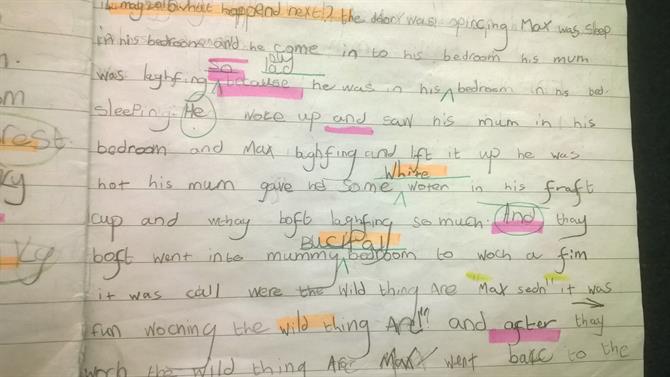 happend next!? the door was opincing Max was sleep
in his bedroom and he come in to his bedroom his mum
so lad
was laghfing because he was in his bedroom in his bed.
sleeping. He woke up and saw his mum in his
bedroom and Max laghfing and lft it up he was
White
hot his mum gave hd some woten in his fraft
cup and whay boft laghfing so much. And thay
boft went into mummy bedroom to woch a fim
it was call were the wild thing Are "Max sedn" it was
fun woching the wild thing Are!!" and after thay
woch the wild thing Are Max went bacc to the
rest
ky